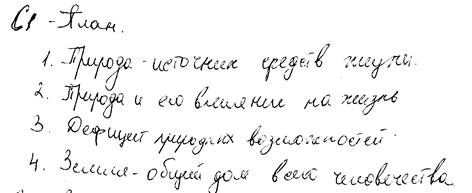 С1 - План.
1. Природа - источник средств жизни.
2. Природа и его влияние на жизнь
3. Дефицит природных возможностей.
4. Земля - общий дом всего человечества